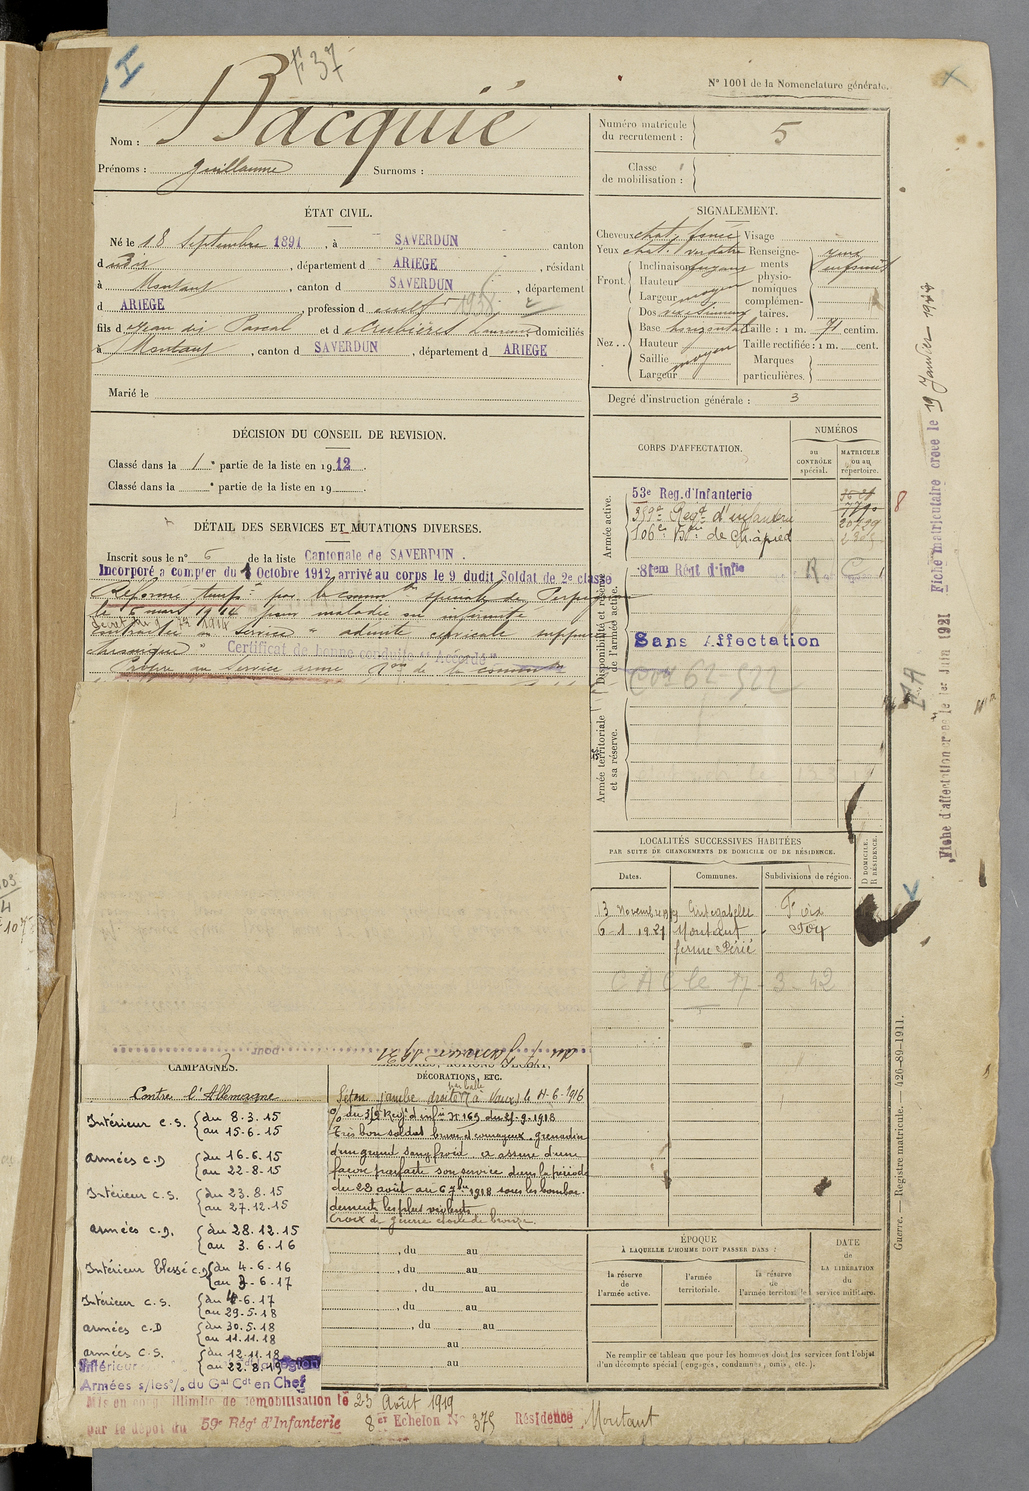 F 37
N° 1001 de la Nomenclature générale.
Nom : Bacquié
Prénoms : Guillaume Surnoms :
Numéro matricule du recrutement : 5
Classe de mobilisation :
ÉTAT CIVIL.
Né le 18 Septembre 1891, à SAVERDUN canton
d dudit, département d ARIEGE, résidant
à Montaut, canton d SAVERDUN, département
d ARIEGE, profession d cultr
fils d Jean dit Pascal et d domiciliés
à Montaut, canton d SAVERDUN, département d ARIEGE
Marié le
SIGNALEMENT.
Cheveux chat. foncé Visage
Yeux chat. verdatre Renseignements physionomiques complémentaires.
yeux enfoncés
Front. Inclinaison fuyant
Hauteur moyen
Largeur
Nez. Dos
Base horizontale
Hauteur
Saillie moyen
Largeur
Taille : 1 m. 71 centim.
Taille rectifiée : 1 m. cent.
Marques particulières.
Degré d'instruction générale : 3
DÉCISION DU CONSEIL DE REVISION.
Classé dans la 1e partie de la liste en 1912.
Classé dans la e partie de la liste en 19
DÉTAIL DES SERVICES ET MUTATIONS DIVERSES.
Inscrit sous le n° 6 de la liste Cantonale de SAVERDUN.
Incorporé a compter du Octobre 1912 arrivé au corps le 9 dudit Soldat de 2e classe
Réformé tempre par la common spéciale de Perpignan
le 6 mars 1914 pour maladie ou infirmité
contractée au service "adénite cervicale suppurée
chronique" Certificat de bonne conduite "Accordé"
Propre au service armé
CORPS D'AFFECTATION.
NUMÉROS
au CONTRÔLE spécial.
MATRICULE ou au répertoire.
Armée active.
53e Reg. d'Infanterie
359e Régt d'infanterie
106e Bon de Ch. à pied
Disponibilité et réserve de l'armée active.
81eme Régt d'Infie R
Sans Affectation
62-522
Armée territoriale et sa réserve.
LOCALITÉS SUCCESSIVES HABITÉES
PAR SUITE DE CHANGEMENTS DE DOMICILE OU DE RÉSIDENCE.
Dates. Communes. Subdivisions de région. D DOMICILE. R RÉSIDENCE.
13 Novembre 19 Cintegabelle Foix
6-1 1921 Montaut Foix
ferme Périé
CAC le 17-3-42
pour
CAMPAGNES.
Contre l'Allemagne
Intérieur C.S. du 8.3.15
au 15-6-15
armées C.D du 16.6.15
au 22-8-15
Intérieur C.S. du 23.8.15
au 27.12.15
armées C.D. du 28.12.15
au 3.6.16
Intérieur blessé C.D du 4-6-16
au 3-6-17
Intérieur C.S. du 4-6.17
au 29.5.18
armées C.D du 30.5.18
au 11.11.18
armées C.S. du 12.11.18
au 22.8.19
Intérieur
Armées s/les o/ du Gal Cdt en Chef
DÉCORATIONS, ETC.
Séton jambe droite par balle à Vaux le 4-6-1916
O/ du 359 Regt d'infie N 169 du 21-9-1918
Très bon soldat brave et courageux, grenadier
d'un grand sang froid, a assuré d'une
façon parfaite son service dans la période
du 23 août au 6 7bre 1918 sous les bombar
dements les plus violents
Croix de guerre étoile de bronze.
, du au
, du au
, du au
, du au
, du au
au
au
ÉPOQUE
À LAQUELLE L'HOMME DOIT PASSER DANS :
la réserve de l'armée active. l'armée territoriale. la réserve de l'armée territoriale
DATE de LA LIBÉRATION du service militaire.
Ne remplir ce tableau que pour les hommes dont les services font l'objet
d'un décompte spécial (engagés, condamnés, omis, etc.).
Mis en congé illimité de démobilisation le 23 Août 1919
par le dépôt du 59e Régt d'Infanterie 8e Echelon No 375 Résidence Montaut
Fiche matriculaire créée le 19 Janvier 1944
Fiche d'affectation créée le 1er Juin 1921
Guerre. — Registre matricule. — 426-89-1911.